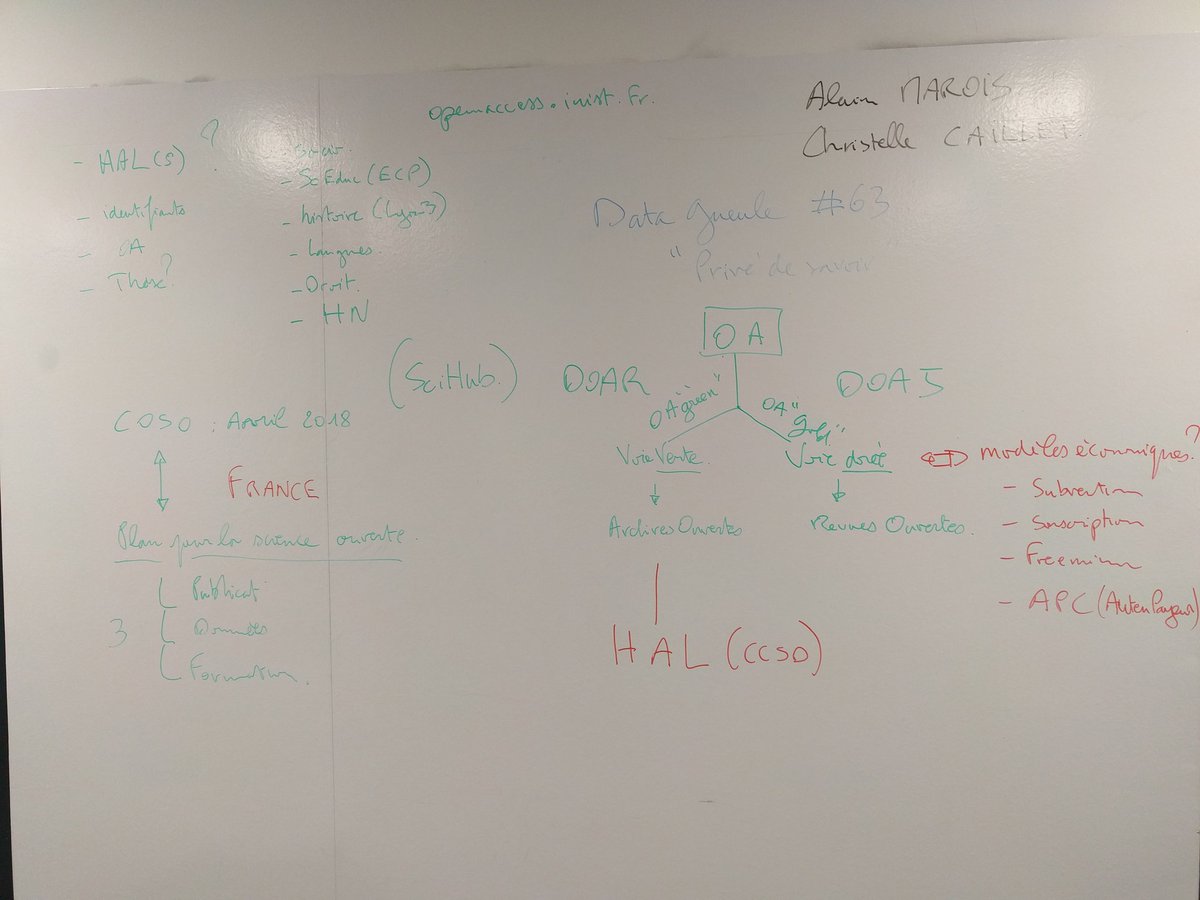 openaccess.inist.fr.
Alain MAROIS
Christelle CAILLET.
- HAL(S) ?
- identifiants
- OA
- Thèse?
- Sc Educ (ECP)
- histoire (Lyon 3)
- Langues.
- Droit.
- HN
Data Gueule #63
"Privé de savoir
(SciHub.)
OA
DOAR
DOAJ
OA "green"
OA "gold"
Voie Verte.
Voie dorée
Archives Ouvertes
Revues Ouvertes.
HAL (CCSD)
modèles économiques?
- Subvention
- Souscription
- Freemium
- APC (Auteur Payeur)
COSO : Avril 2018
FRANCE
Plan pour la science ouverte.
3
Publicat°
Données
Formation.